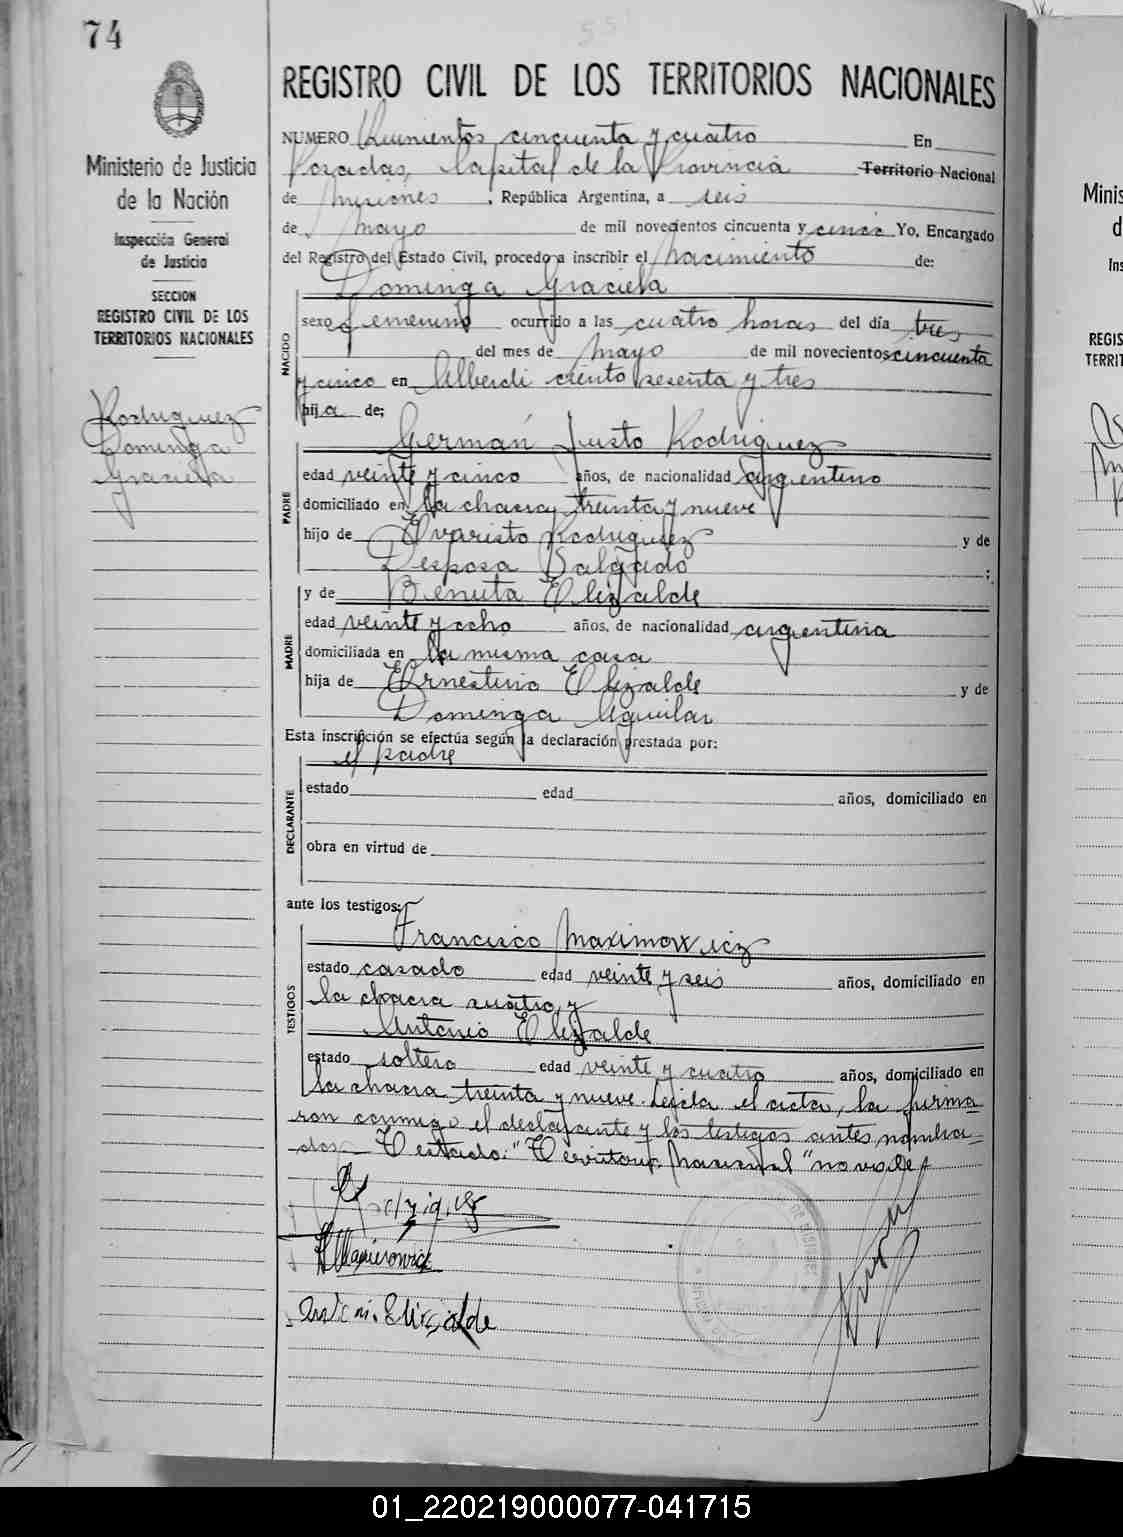 74
Ministerio de Justicia
de la Nación
Inspección General
de Justicia
SECCION
REGISTRO CIVIL DE LOS
TERRITORIOS NACIONALES
Rodriguez
Dominga
Graciela
REGISTRO CIVIL DE LOS TERRITORIOS NACIONALES
NUMERO Quinientos cincuenta y cuatro En
Posadas, Capital de la Provincia Territorio Nacional
de Misiones, República Argentina, a seis
de mayo de mil novecientos cincuenta y cinco Yo, Encargado
del Registro del Estado Civil, procedo a inscribir el nacimiento de:
Dominga Graciela
NACIDO
sexo femenino ocurrido a las cuatro horas del día tres
del mes de mayo de mil novecientos cincuenta
y cinco en Alberdi ciento sesenta y tres
hija de;
German Justo Rodriguez
PADRE
edad veinte y cinco años, de nacionalidad argentino
domiciliado en la chacra treinta y nueve
hijo de Evaristo Rodriguez y de
Delgado ;
y de Benita Elizalde
MADRE
edad veinte y ocho años, de nacionalidad argentina
domiciliada en la misma casa
hija de Ernestino Elizalde y de
Dominga Aguilar
Esta inscripción se efectúa según la declaración prestada por:
el padre
DECLARANTE
estado edad años, domiciliado en
obra en virtud de
ante los testigos:
Francisco Maximowicz
TESTIGOS
estado casado edad veinte y seis años, domiciliado en
la chacra cuatro y
Antonio Elizalde
estado soltero edad veinte y cuatro años, domiciliado en
la chacra treinta y nueve. Leida el acta, la firma
ron conmigo el declarante y los testigos antes nombra
dos.- Testado: "Territorio Nacional" no vale
Elizalde
Minis
d
Ins
REGIS
TERRIT
01_220219000077-041715